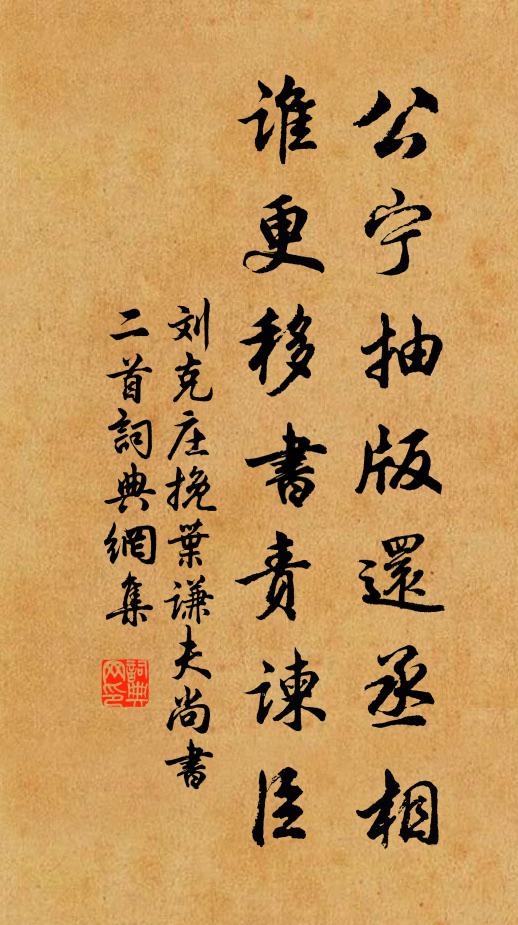 公宁抽版還丞相
谁更移書责谏臣
刘克庄挽葉谦夫尚書
二首詞典網集
詞典
网印